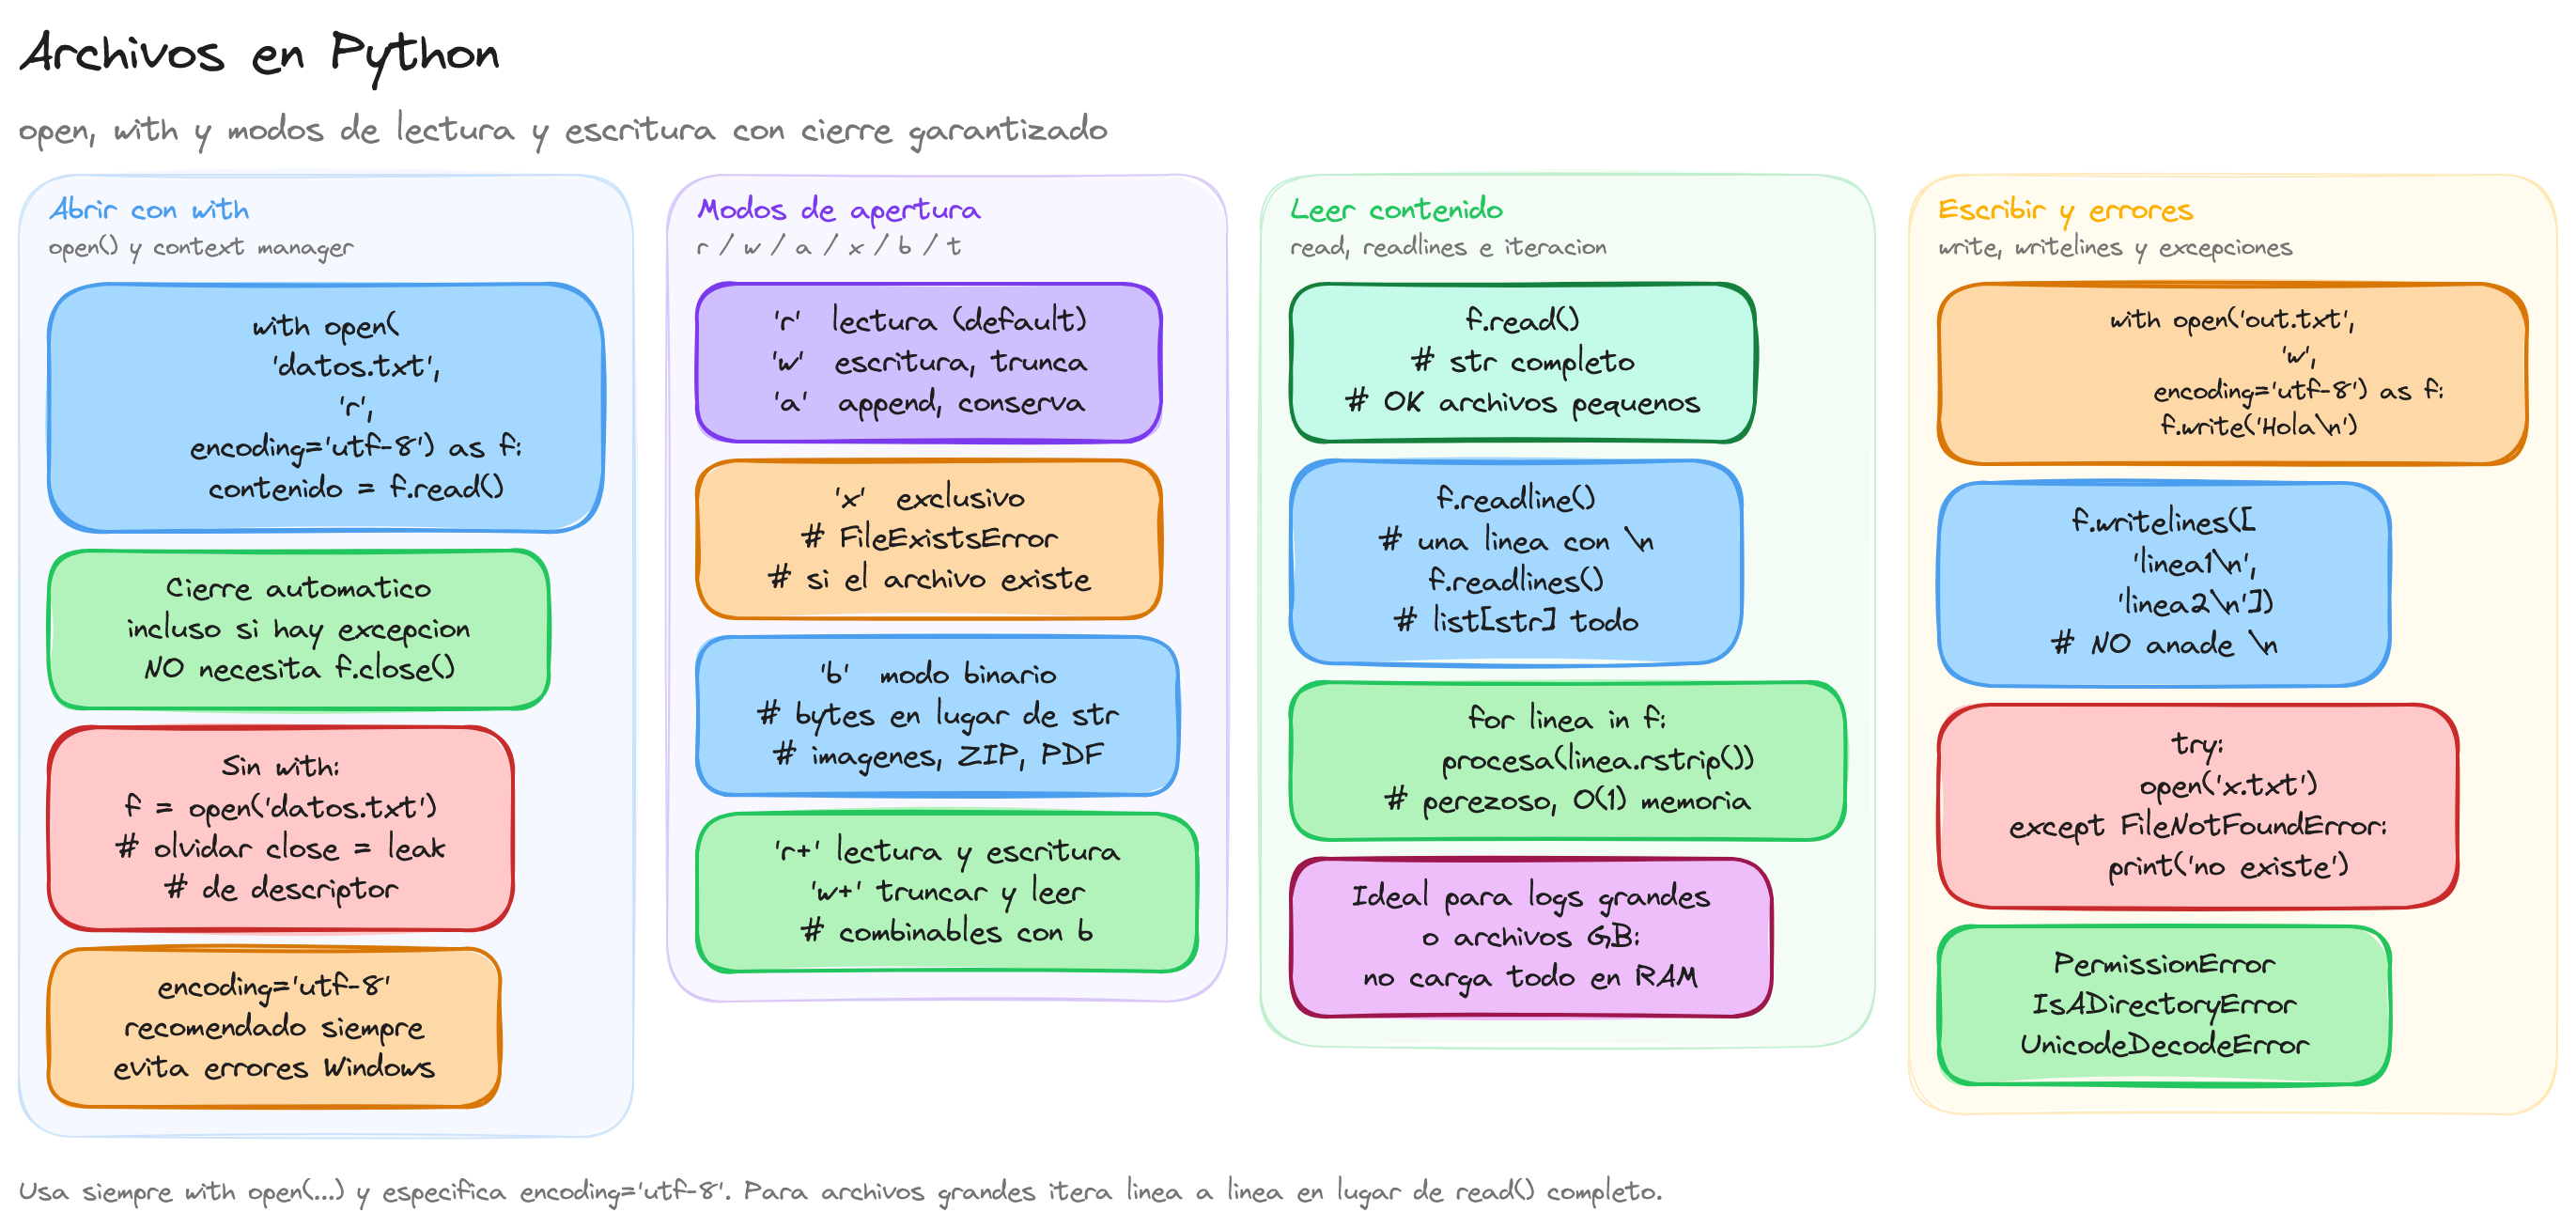 Archivos en Python
open, with y modos de lectura y escritura con cierre garantizado
Abrir con with
open() y context manager
with open(
'datos.txt',
'r',
encoding='utf-8') as f:
contenido = f.read()
Cierre automatico
incluso si hay excepcion
NO necesita f.close()
Sin with:
f = open('datos.txt')
# olvidar close = leak
# de descriptor
encoding='utf-8'
recomendado siempre
evita errores Windows
Modos de apertura
r / w / a / x / b / t
'r' lectura (default)
'w' escritura, trunca
'a' append, conserva
'x' exclusivo
# FileExistsError
# si el archivo existe
'b' modo binario
# bytes en lugar de str
# imagenes, ZIP, PDF
'r+' lectura y escritura
'w+' truncar y leer
# combinables con b
Leer contenido
read, readlines e iteracion
f.read()
# str completo
# OK archivos pequenos
f.readline()
# una linea con \n
f.readlines()
# list[str] todo
for linea in f:
procesa(linea.rstrip())
# perezoso, O(1) memoria
Ideal para logs grandes
o archivos GB:
no carga todo en RAM
Escribir y errores
write, writelines y excepciones
with open('out.txt',
'w',
encoding='utf-8') as f:
f.write('Hola\n')
f.writelines([
'linea1\n',
'linea2\n'])
# NO anade \n
try:
open('x.txt')
except FileNotFoundError:
print('no existe')
PermissionError
IsADirectoryError
UnicodeDecodeError
Usa siempre with open(...) y especifica encoding='utf-8'. Para archivos grandes itera linea a linea en lugar de read() completo.